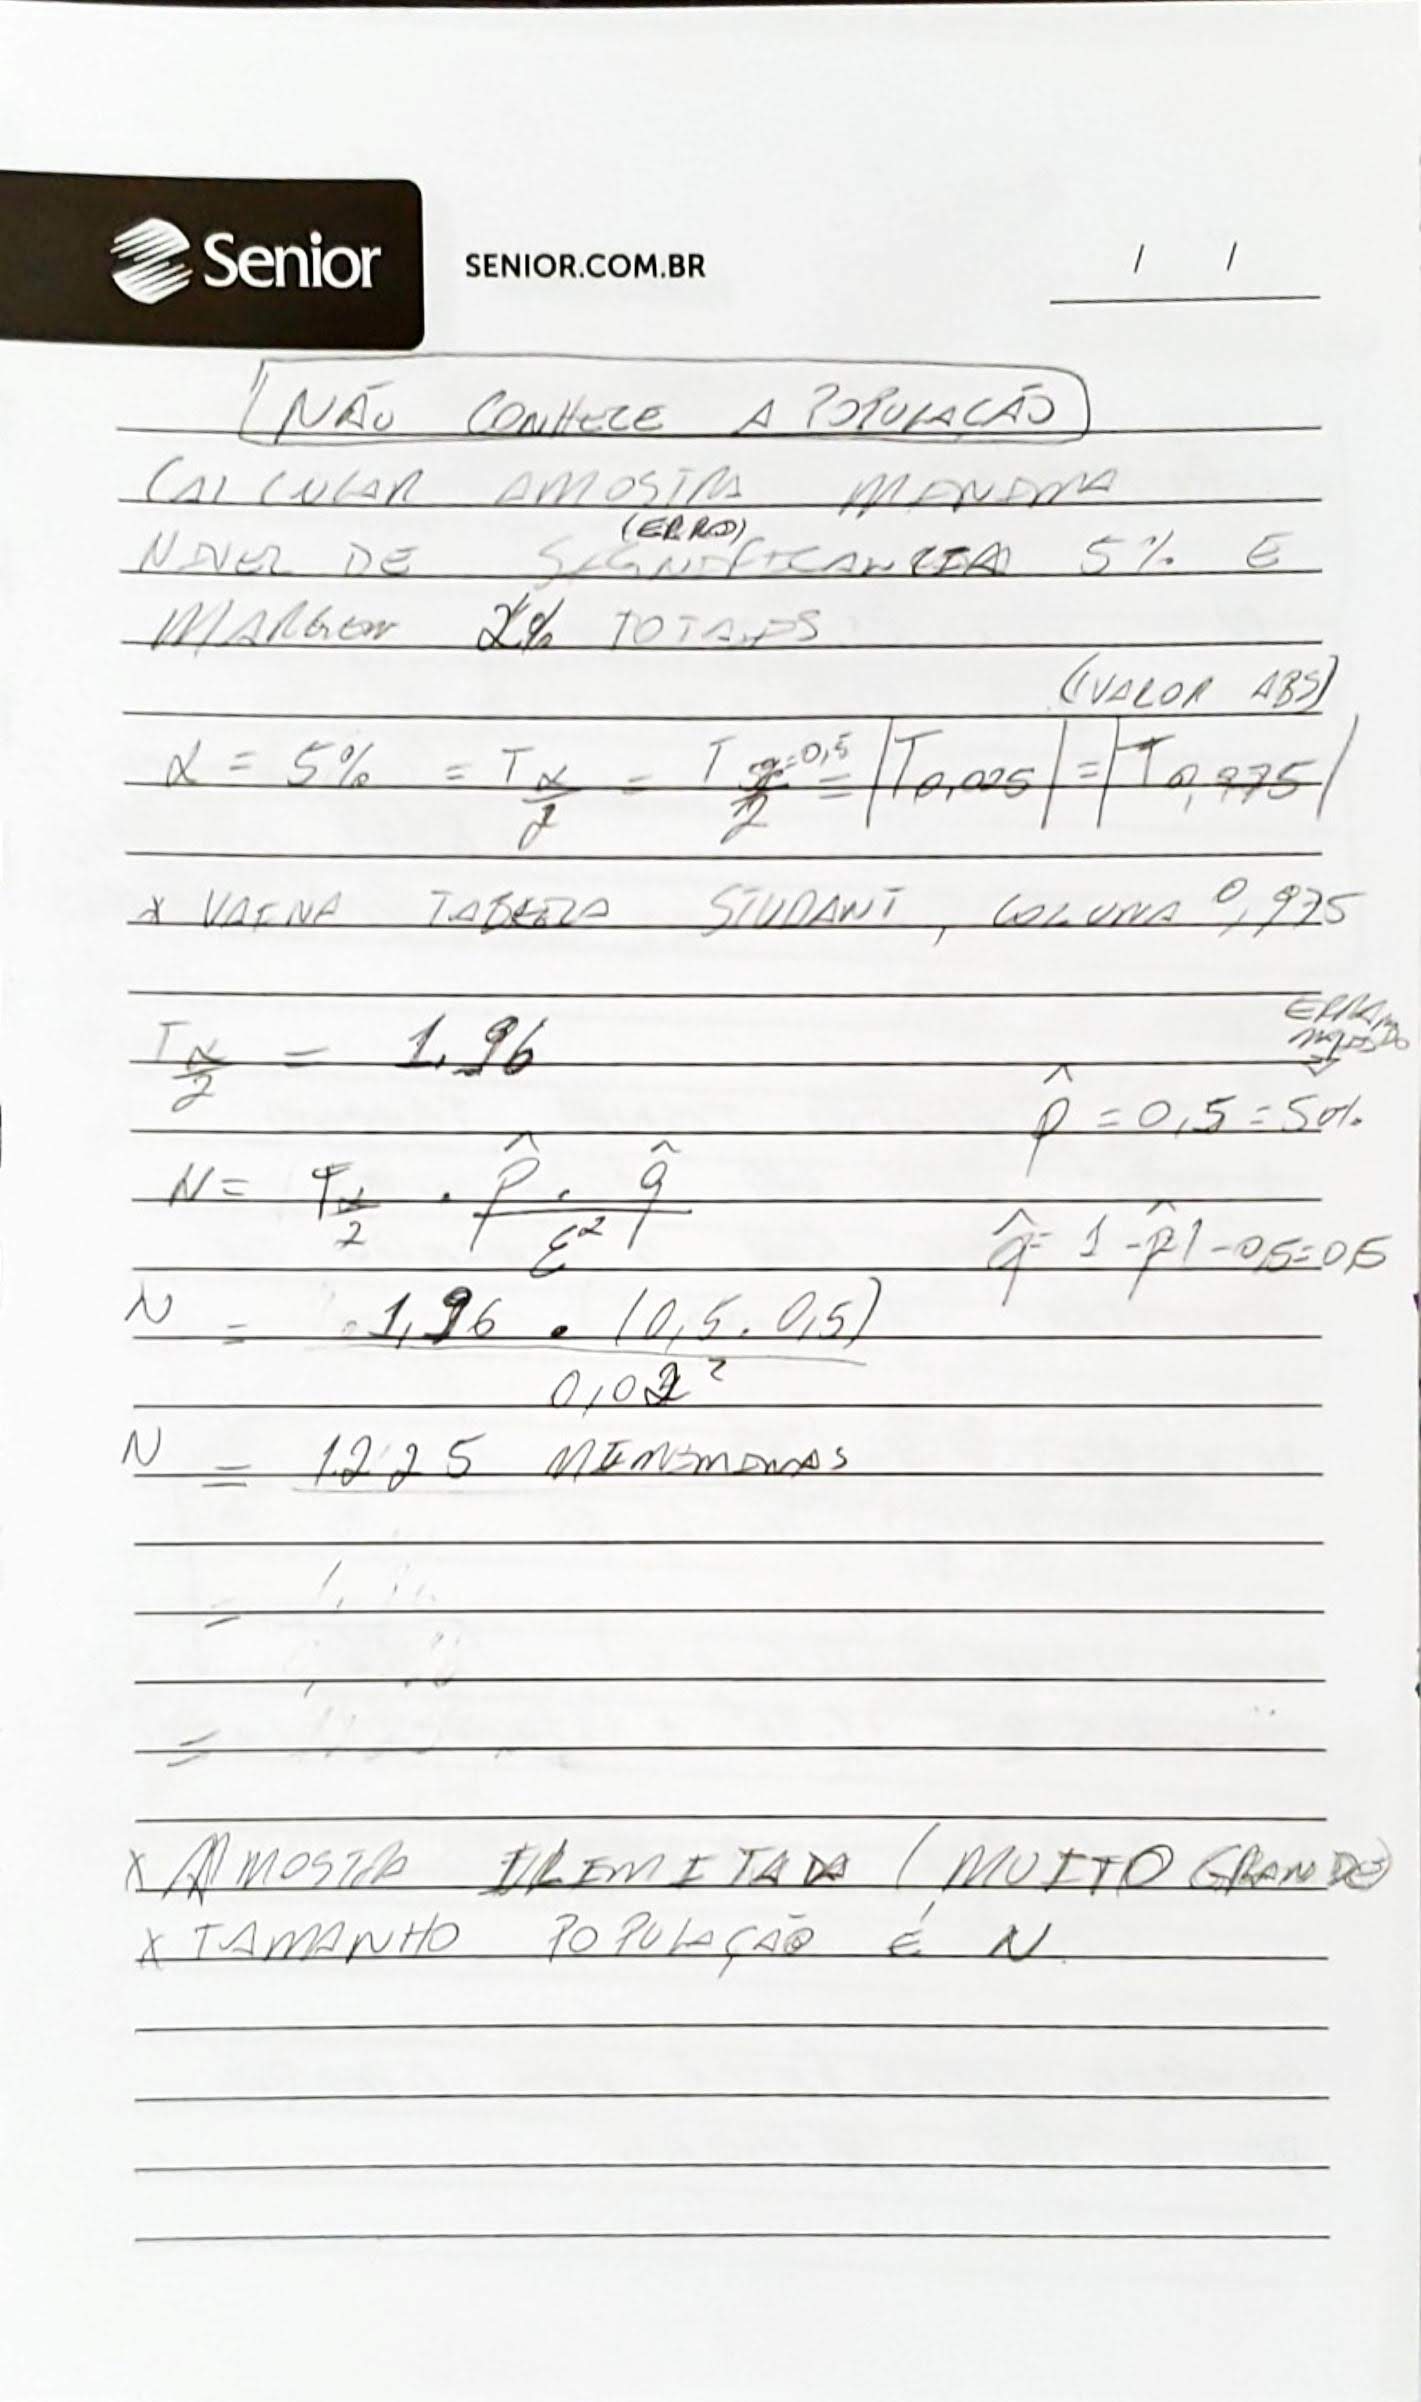 Senior
SENIOR.COM.BR
/ /
NÃO CONHECE A POPULAÇÃO
CALCULAR AMOSTRA MINIMA
(ERRO)
NIVEL DE SIGNIFICANCIA 5% E
MARGEM 2% TOTAIS
(VALOR ABS)
α = 5% = T α/2 = T α=0,5/2 = |T 0,025| = |T 0,975|
* VAI NA TABELA STUDANT, COLUNA 0,975
T α/2 = 1.96
p̂ = 0,5 = 50%
N = T α/2 · p̂ . q̂ / ε²
q̂ = 1 - p̂ 1 - 0,5 = 0,5
N = 1,96 . (0,5 . 0,5) / 0,02²
N = 1225 MINIMINAS
x AMOSTRA ILIMITADA (MUITO GRANDE)
x TAMANHO POPULAÇÃO É N